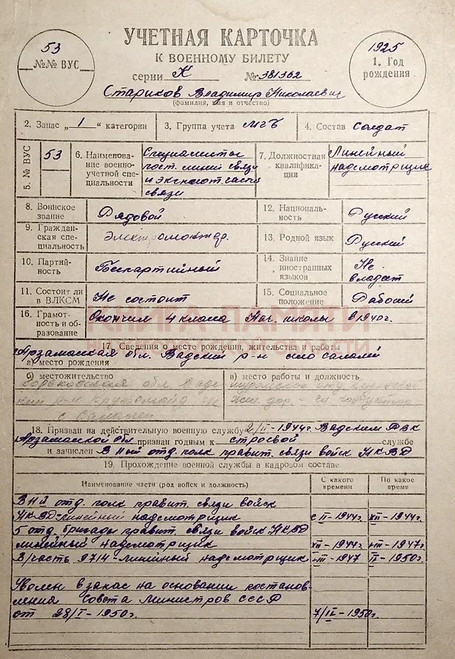 УЧЕТНАЯ КАРТОЧКА
К ВОЕННОМУ БИЛЕТУ
53
№№ ВУС
серии К № 381362
1925
1. Год рождения
Стариков Владимир Николаевич
(фамилия, имя и отчество)
2. Запас „1" категории
3. Группа учета МГБ
4. Состав Солдат
5. № ВУС
53
6. Наименование военно-учетной специальности
Специалисты пост. линий связи и эксплоат. части связи
7. Должностная квалификация
Линейный надсмотрщик
8. Воинское звание
Рядовой
12. Национальность
Русский
9. Гражданская специальность
Электромонтер.
13. Родной язык
Русский
10. Партийность
Беспартийный
14. Знание иностранных языков
Не владеет
11. Состоит ли в ВЛКСМ
Не состоит
15. Социальное положение
Рабочий
16. Грамотность и образование
Окончил 4 класса Нач. школы в 1940 г.
17. Сведения о месте рождения, жительства и работы
Арзамасская обл. Вадский р-н село
а) место рождения
б) местожительство
в) место работы и должность
18. Призван на действительную военную службу 2/II-1944 г. Вадским РВК
Арзамасской обл. признан годным к строевой службе
и зачислен в отд. полк правит. связи войск НКВД
19. Прохождение военной службы в кадровом составе
Наименование части (род войск и должность)
С какого времени
По какое время
отд. полк правит. связи войск
НКВД-линейный надсмотрщик
с II-1944 г. XII-1944 г.
5 отд. бригады правит. связи войск НКВД
линейный надсмотрщик
XII-1944 г. 1947
В/часть 9714-линейный надсмотрщик
1947 1950 г.
Уволен в запас на основании постановления Совета Министров СССР
от 28/I-1950 г.
1950 г.